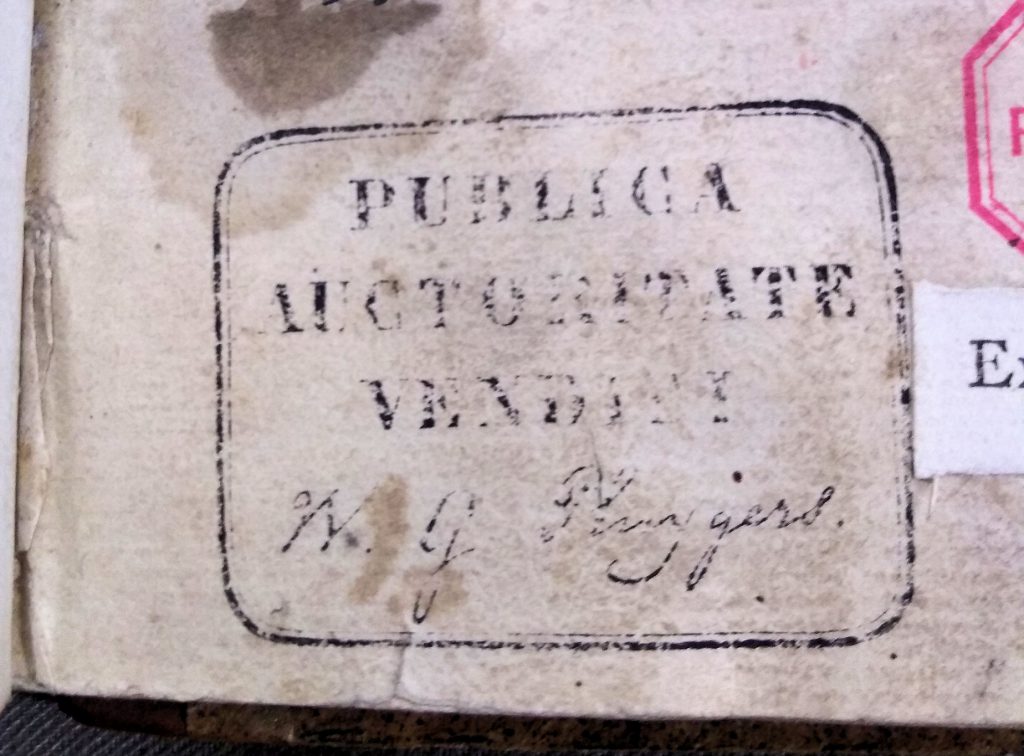 PUBLICA
AUCTORITATE
VENDIDI
W. G. Pluygers.
Ex